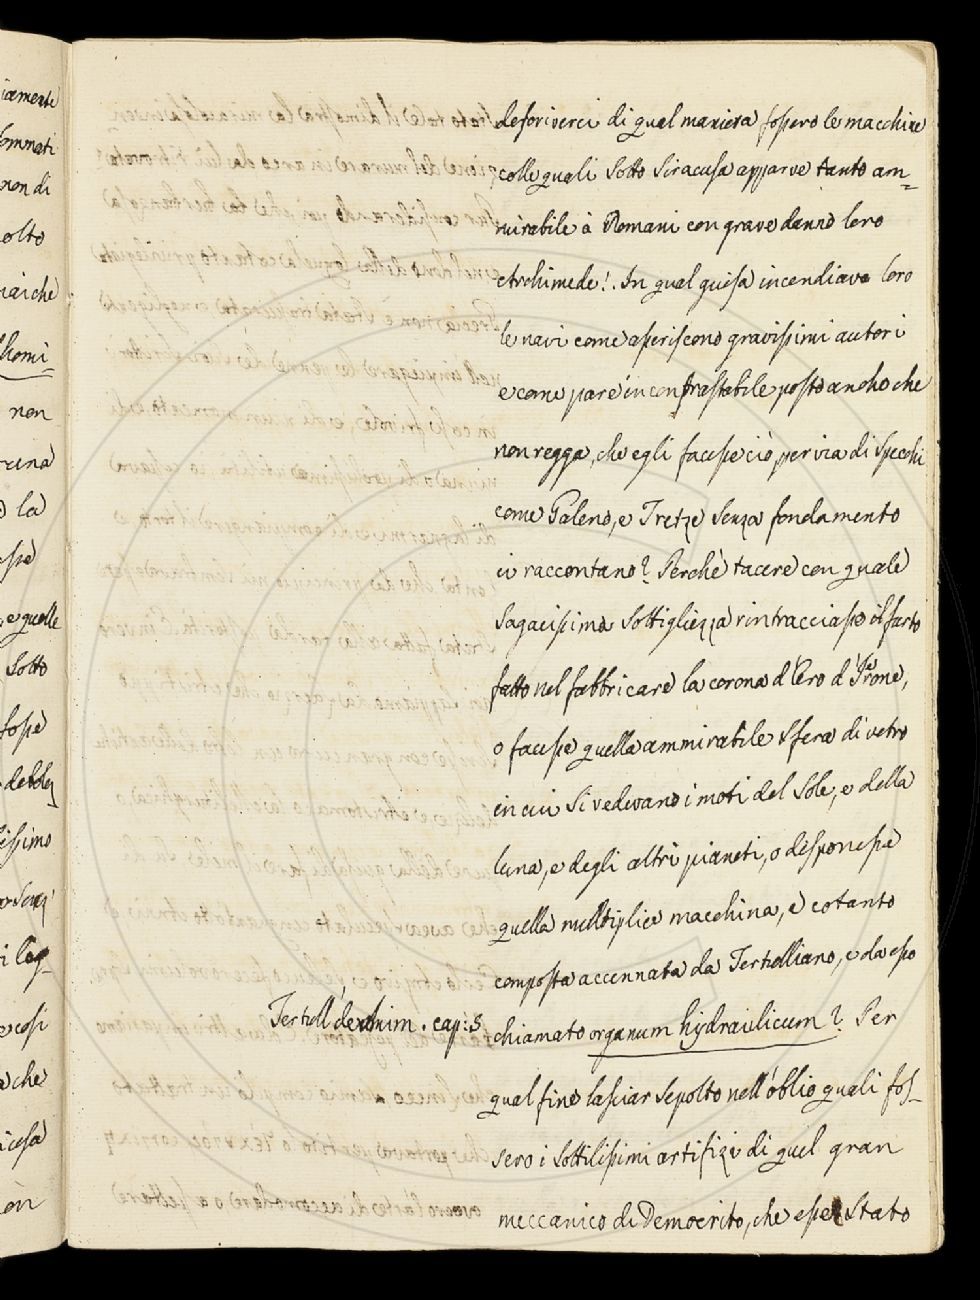 descriverci di qual maniera fossero le macchine
colle quali sotto Siracusa apparve tanto am=
mirabile à Romani con grave danno loro
Archimede! In qual guisa incendiava loro
le navi come asseriscono gravissimi autori
e come pare incontrastabile, posto ancho che
non regga, che egli facesse ciò per via di specchi
come Galeno, e Tzetze senza fondamento
ci raccontano? Perchè tacere con quale
sagacissima sottigliezza rintracciasse il furto
fatto nel fabbricare la corona d'oro d'Irone,
o facesse quella ammirabile sfera di vetro
in cui si vedevano i moti del Sole, e della
luna, e degli altri pianeti, o disponesse
quella multiplice macchina, e cotanto
composta accennata da Tertulliano, e da esso
Tertull' de Anim. cap: 5
chiamato organum hydraulicum? Per
qual fine lasciar sepolto nell'oblio quali fos-
sero i sottilissimi artifizi di quel gran
meccanico di Democrito, che esser stato
iamente
non di
olto
non
la
e quelle
sotto
issimo
che